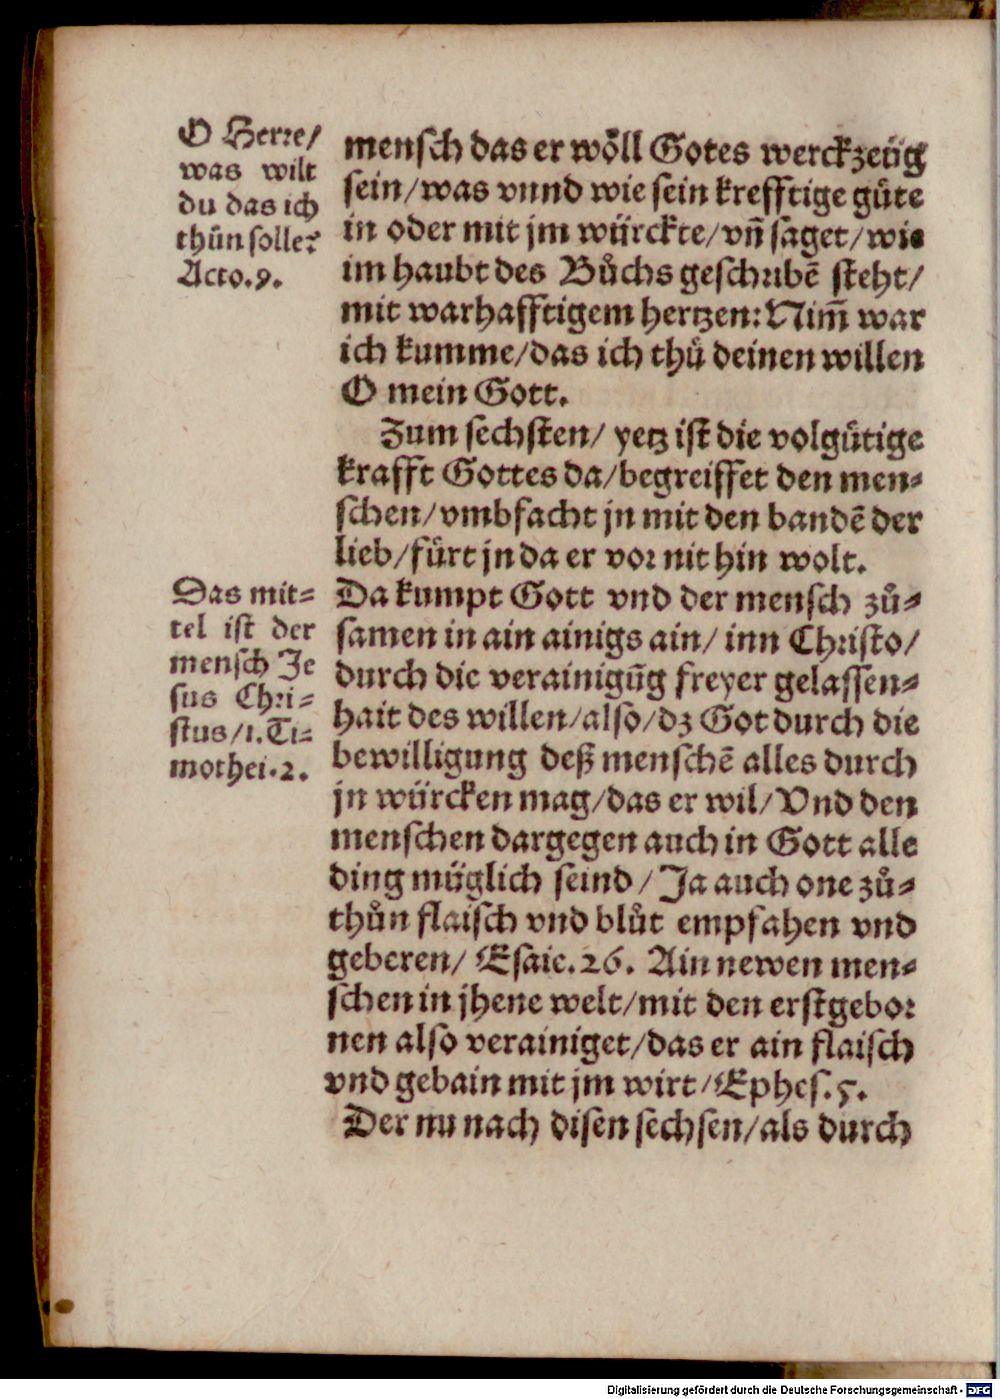 O Herre/
was wilt
du das ich
thuͦn solle?
Acto.9.
mensch das er woͤll Gotes werckzeüg
sein/was vnnd wie sein krefftige guͤte
in oder mit jm würckte/vñ saget/wie
im haubt des Buͦchs geschribẽ steht/
mit warhafftigem hertzen: Nim̃ war
ich kumme/das ich thuͦ deinen willen
O mein Gott.
Zum sechsten/ yetz ist die volguͤtige
krafft Gottes da/begreiffet den men⸗
schen/vmbfacht jn mit den bandẽ der
lieb/fuͤrt jn da er vor nit hin wolt.
Das mit⸗
tel ist der
mensch Je
sus Chri⸗
stus/1.Ti⸗
mothei.2.
Da kumpt Gott vnd der mensch zuͦ⸗
samen in ain ainigs ain/ inn Christo/
durch die verainigũg freyer gelassen⸗
hait des willen/also/dz Got durch die
bewilligung deß menschẽ alles durch
jn würcken mag/das er wil/Vnd den
menschen dargegen auch in Gott alle
ding müglich seind/Ja auch one zuͦ⸗
thuͦn flaisch vnd bluͦt empfahen vnd
geberen/ Esaie.26. Ain newen men⸗
schen in jhene welt/mit den erstgebor
nen also verainiget/das er ain flaisch
vnd gebain mit jm wirt/Ephes.5.
Der nu nach disen sechsen/als durch
Digitalisierung gefördert durch die Deutsche Forschungsgemeinschaft - DFG